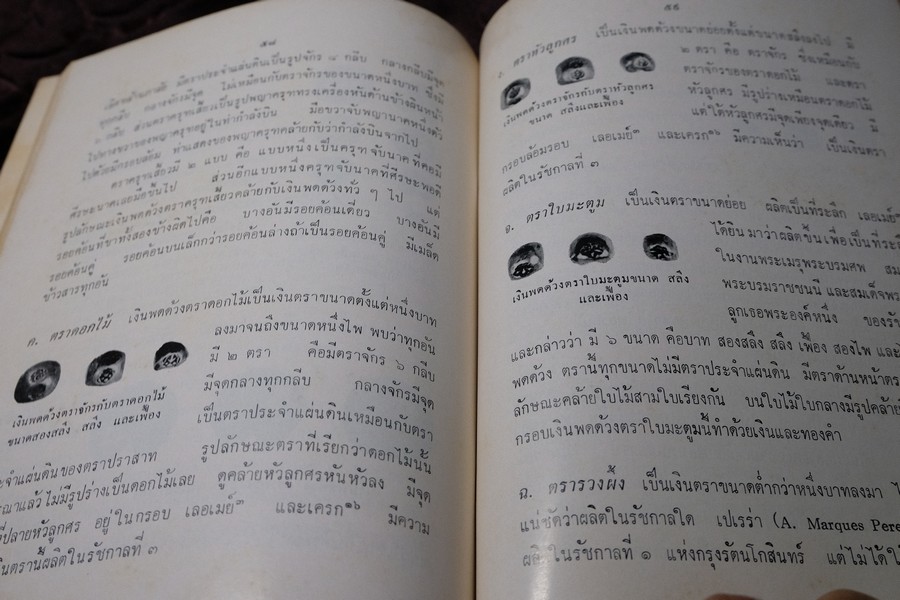 ๕๘
มีตราประจำแผ่นดินเป็นรูปจักร ๘ กลีบ กลางกลีบมีจุด
ทุกกลีบ กลางจักรมีจุด ไม่เหมือนกับตราจักรของขนาดหนึ่งบาท ซึ่งมี
๖ กลีบ ส่วนตราครุฑเสี้ยวเป็นรูปพญาครุฑทรงเครื่องหันด้านข้างลินหน้า
ไปทางขวาของพญาครุฑอยู่ในท่ากำลังบิน มือขวาจับพญานาคหนึ่งตัว
ไปด้วยมีกรอบล้อม ท่าแสดงของพญาครุฑคล้ายกับว่ากำลังบินจากไป
ตราครุฑเสี้ยวมี ๒ แบบ คือ แบบหนึ่งเป็นครุฑจับนาคที่คอมี
ศีรษะนาคเลยมือขึ้นไป ส่วนอีกแบบหนึ่งครุฑจับนาคที่ศีรษะพอดี
รูปลักษณะเงินพดด้วงตราครุฑเสี้ยวคล้ายกับเงินพดด้วงทั่ว ๆ ไป แต่
รอยค้อนที่ขาทั้งสองข้างผิดไปคือ บางอันมีรอยค้อนเดี่ยว บางอันมี
รอยค้อนคู่ รอยค้อนบนเล็กกว่ารอยค้อนล่างถ้าเป็นรอยค้อนคู่ มีเมล็ด
ข้าวสารทุกอัน
ค. ตราดอกไม้ เงินพดด้วงตราดอกไม้เป็นเงินตราขนาดตั้งแต่หนึ่งบาท
ลงมาจนถึงขนาดหนึ่งไพ พบว่าทุกอัน
มี ๒ ตรา คือมีตราจักร ๖ กลีบ
มีจุดกลางทุกกลีบ กลางจักรมีจุด
เป็นตราประจำแผ่นดินเหมือนกับตรา
เงินพดด้วงตราจักรกับตราดอกไม้
ขนาดสองสลึง สลึง และเฟื้อง
ะจำแผ่นดินของตราปราสาท รูปลักษณะตราที่เรียกว่าดอกไม้นั้น
รณาแล้วไม่มีรูปร่างเป็นดอกไม้เลย ดูคล้ายหัวลูกศรหันหัวลง มีจุด
ี่ปลายหัวลูกศร อยู่ในกรอบ เลอเมย์๓ และเครก๑๖ มีความ
นเงินตรานี้ผลิตในรัชกาลที่ ๓
๕๙
ง. ตราหัวลูกศร เป็นเงินพดด้วงขนาดย่อยตั้งแต่ขนาดสลึงลงไป มี
๒ ตรา คือ ตราจักร ซึ่งเหมือนกับ
ตราจักรของตราดอกไม้ และตรา
หัวลูกศร มีรูปร่างเหมือนตราดอกไม้
แต่ใต้หัวลูกศรมีจุดเพียงจุดเดียว มี
เงินพดด้วงตราจักรกับตราหัวลูกศร
ขนาด สลึงและเฟื้อง
กรอบล้อมรอบ เลอเมย์๓ และเครก๑๖ มีความเห็นว่า เป็นเงินตรา
ผลิตในรัชกาลที่ ๓
จ. ตราใบมะตูม เป็นเงินตราขนาดย่อย ผลิตเป็นที่ระลึก เลอเมย์
ได้ยินมาว่าผลิตขึ้นเพื่อเป็นที่ระลึ
ในงานพระเมรุพระบรมศพ สม
พระบรมราชชนนี และสมเด็จพร
ลูกเธอพระองค์หนึ่ง ของรั
เงินพดด้วงตราใบมะตูมขนาด สลึง
และเฟื้อง
และกล่าวว่า มี ๖ ขนาด คือบาท สองสลึง สลึง เฟื้อง สองไพ และไ
พดด้วง ตรานี้ทุกขนาดไม่มีตราประจำแผ่นดิน มีตราด้านหน้าตร
ลักษณะคล้ายใบไม้สามใบเรียงกัน บนใบไม้ใบกลางมีรูปคล้าย
กรอบเงินพดด้วงตราใบมะตูมนี้ทำด้วยเงินและทองคำ
ฉ. ตรารวงผึ้ง เป็นเงินตราขนาดต่ำกว่าหนึ่งบาทลงมา ไ
แน่ชัดว่าผลิตในรัชกาลใด เปเรร่า (A. Marques Pere
ผลิตในรัชกาลที่ ๑ แห่งกรุงรัตนโกสินทร์ แต่ไม่ได้ใ